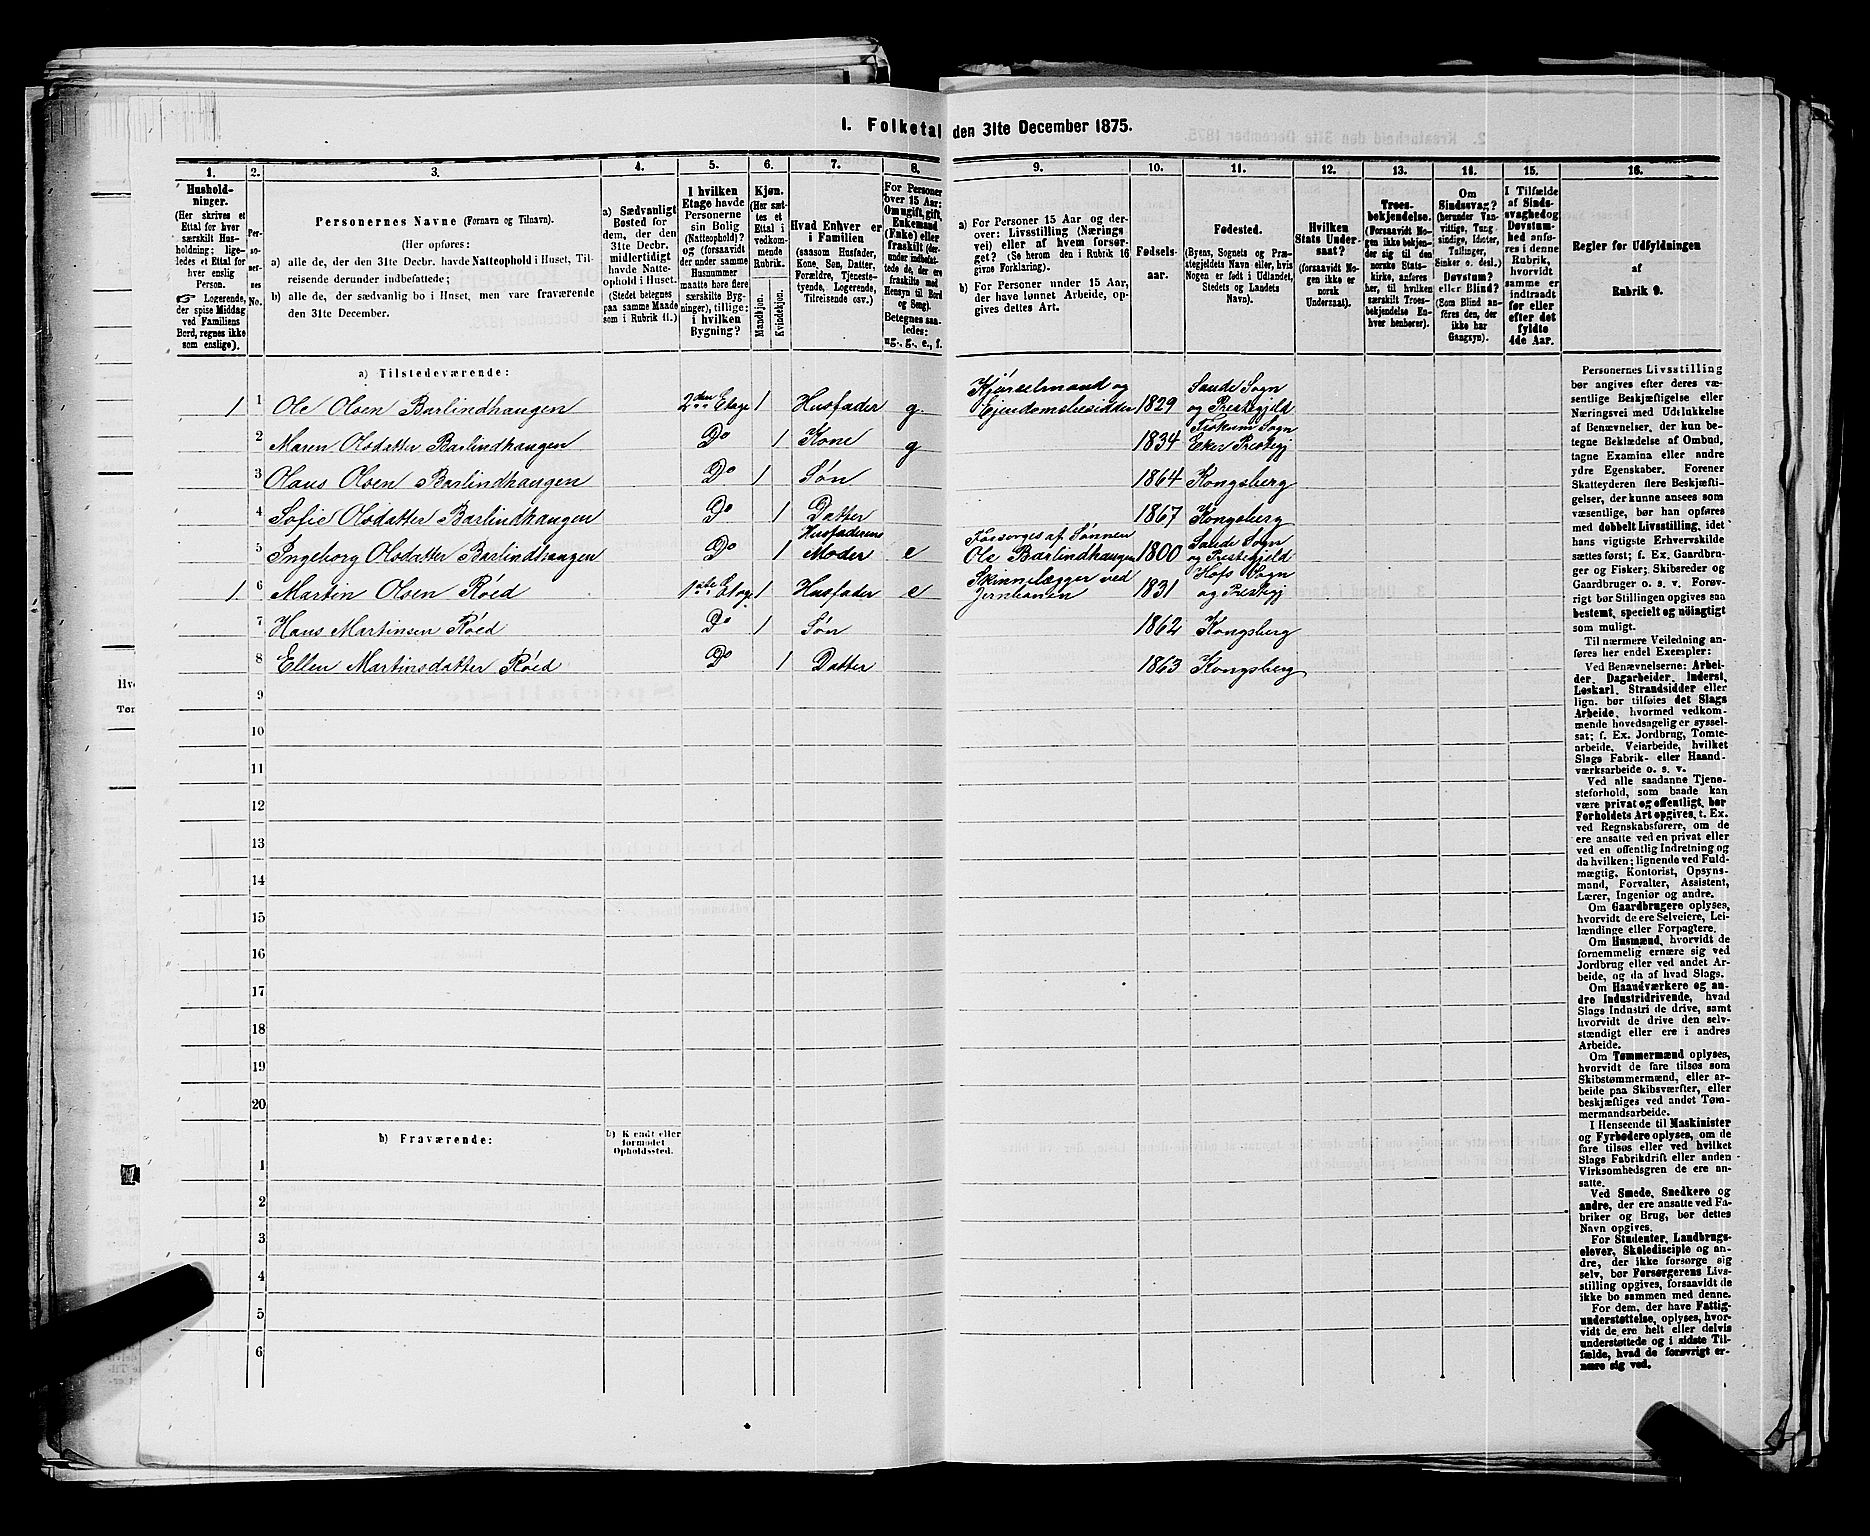 1. Folketal den 31te December 1875.
1.
Hushold-
ninger.
(Her skrives et
Ettal for hver
særskilt Hus-
holdning; lige-
ledes et Ettal for
hver enslig
Person.
☞ Logerende,
der spise Middag
ved Familiens
Bord, regnes ikke
som enslige).
2.
Per-
so-
ner-
nes
No.
3.
Personernes Navne (Fornavn og Tilnavn).
(Her opføres:
a) alle de, der den 31te Decbr. havde Natteophold i Huset, Til-
reisende derunder indbefattede;
b) alle de, der sædvanlig bo i Huset, men vare fraværende
den 31te December.
4.
a) Sædvanligt
Bosted for
dem, der den
31te Decbr.
midlertidigt
havde Natte-
ophold i Huset.
(Stedet betegnes
paa samme Maade
som i Rubrik 11.)
5.
I hvilken
Etage havde
Personerne
sin Bolig
(Natteophold)?
(forsaavidt
der under samme
Husnummer
maatte høre flere
særskilte Byg-
ninger), tillige:
i hvilken
Bygning?
6.
Kjøn.
(Her sæt-
tes et
Ettal i
vedkom-
mende
Rubrik.
Mandkjøn.
Kvindekjøn.
7.
Hvad Enhver er
i Familien
(saasom Husfader,
Kone, Søn, Datter,
Forældre, Tjeneste-
tyende, Logerende,
Tilreisende osv.)
8.
For Personer
over 15 Aar:
Om ugift, gift,
Enkemand
(Enke) eller
fraskilt (der-
under indbefat-
tede de, der ere
fraskilte med
Hensyn til Bord
og Seng).
Betegnes saa-
ledes:
ug., g., e., f.
9.
a) For Personer 15 Aar og der-
over: Livsstilling (Nærings
vei) eller af hvem forsør-
get? (Se herom den i Rubrik 16
givne Forklaring).
b) For Personer under 15 Aar,
der have lønnet Arbeide, op-
gives dettes Art.
10.
Fødsels-
aar.
11.
Fødested.
(Byens, Sognets og Præ-
stegjeldets Navn eller, hvis
Nogen er født i Udlandet,
Stedets og Landets
Navn).
12.
Hvilken
Stats Under-
saat?
(forsaavidt No-
gen ikke er
norsk
Undersaat).
13.
Troes-
bekjendelse.
(Forsaavidt No-
gen ikke bekjen-
der sig til den
norske Stats-
kirke, anføres
her, til hvilken
særskilt Troes-
bekjendelse En-
hver henhører).
14.
Om
Sindssvag?
(herunder Van-
vittige, Tung
sindige, Idioter,
Tullinger,
Sinker o. desl.)
Døvstum?
eller Blind?
(Som Blind an-
føres den, der
ikke har
Gangsyn).
15.
I Tilfælde
af Sinds-
svaghed og
Døvstum-
hed anfø-
res i denne
Rubrik,
hvorvidt
samme er
indtraadt
før eller
efter det
fyldte
4de Aar.
16.
Regler for Udfyldningen
af
Rubrik 9.
a) Tilstedeværende:
1 1 Ole Olsen Barlindhaugen 2den Etage 1 Husfader g. Kjørselmand og Eiendomsbesidder 1829 Saude Sogn og Prestegjeld
2 Maren Olsdatter Barlindhaugen Do 1 Kone g 1834 Fiskum Sogn Eker Prestegj
3 Olaus Olsen Barlindhaugen Do 1 Søn 1864 Kongsberg
4 Sofie Olsdatter Barlindhaugen Do 1 Datter 1867 Kongsberg
5 Ingeborg Olsdatter Barlindhaugen Do 1 Husfaderens Moder e Forsørges af Sønnen Ole Barlindhaugen 1800 Saude Sogn og Prestegjeld
1 6 Martin Olsen Röed 1ste Etage 1 Husfader e Skinnelægger ved Jernbanen 1831 Hofs Sogn og Prestegj
7 Hans Martinsen Röed Do 1 Søn 1862 Kongsberg
8 Ellen Martinsdatter Röed Do 1 Datter 1863 Kongsberg
9
10
11
12
13
14
15
16
17
18
19
20
b) Fraværende:
b) Kjendt eller
formodet
Opholdssted.
1
2
3
4
5
6
Personernes Livsstilling
bør angives efter deres væ-
sentlige Beskjæftigelse eller
Næringsvei med Udelukkelse
af Benævnelser, der kun be-
tegne Beklædelse af Ombud,
tagne Examina eller andre
ydre Egenskaber. Forener
Skatteyderen flere Beskjæfti-
gelser, der kunne ansees som
væsentlige, bør han opføres
med dobbelt Livsstilling, idet
hans vigtigste Erhvervskilde
sættes først; f. Ex. Gaardbru-
ger og Fisker; Skibsreder og
Gaardbruger o. s. v. Forøv-
rigt bør Stillingen opgives saa
bestemt, specielt og nöiagtigt
som muligt.
Til nærmere Veiledning an-
føres her endel Exempler:
Ved Benævnelserne: Arbei-
der, Dagarbeider, Inderst,
Løskarl, Strandsidder eller
lign. bør tilføies det Slags
Arbeide, hvormed vedkom-
mende hovedsagelig er syssel-
sat; f. Ex. Jordbrug, Tomte-
arbeide, Veiarbeide, hvilket
Slags Fabrik- eller Haand-
værksarbeide o. s. v.
Ved alle saadanne Tjene-
steforhold, som baade kan
være privat og offentligt, bør
Forholdets Art opgives, t. Ex.
ved Regnskabsførere, om de
ere ansatte ved en privat eller
ved en offentlig Indretning og
da hvilken; lignende ved Fuld-
mægtig, Kontorist, Opsyns-
mand, Forvalter, Assistent,
Lærer, Ingeniør og andre.
Om Gaardbrugere oplyses,
hvorvidt de ere Selveiere, Lei-
lændinge eller Forpagtere.
Om Husmænd, hvorvidt de
fornemmelig ernære sig ved
Jordbrug eller ved andet Ar-
beide, og da af hvad Slags.
Om Haandværkere og an-
dre Industridrivende, hvad
Slags Industri de drive, samt
hvorvidt de drive den selv-
stændigt eller ere i andres
Arbeide.
Om Tømmermænd oplyses,
hvorvidt de fare tilsøs som
Skibstømmermænd, eller ar-
beide paa Skibsværfter, eller
beskjæftiges ved andet Tøm-
mermandsarbeide.
I Henseende til Maskinister
og Fyrbødere oplyses, om de
fare tilsøs eller ved hvilket
Slags Fabrikdrift eller anden
Virksomhedsgren de ere an-
satte.
Ved Smede, Snedkere og
andre, der ere ansatte ved Fa-
briker og Brug, bør dettes
Navn opgives.
For Studenter, Landbrugs-
elever, Skoledisciple og an-
dre, der ikke forsørge sig
selv, bør Forsørgerens Livs-
stilling opgives, forsaavidt de
ikke bo sammen med denne.
For dem, der have Fattig-
understøttelse, oplyses, hvor-
vidt de ere helt eller delvis
understøttede og i sidste Til-
fælde, hvad de forøvrigt er-
nære sig ved.